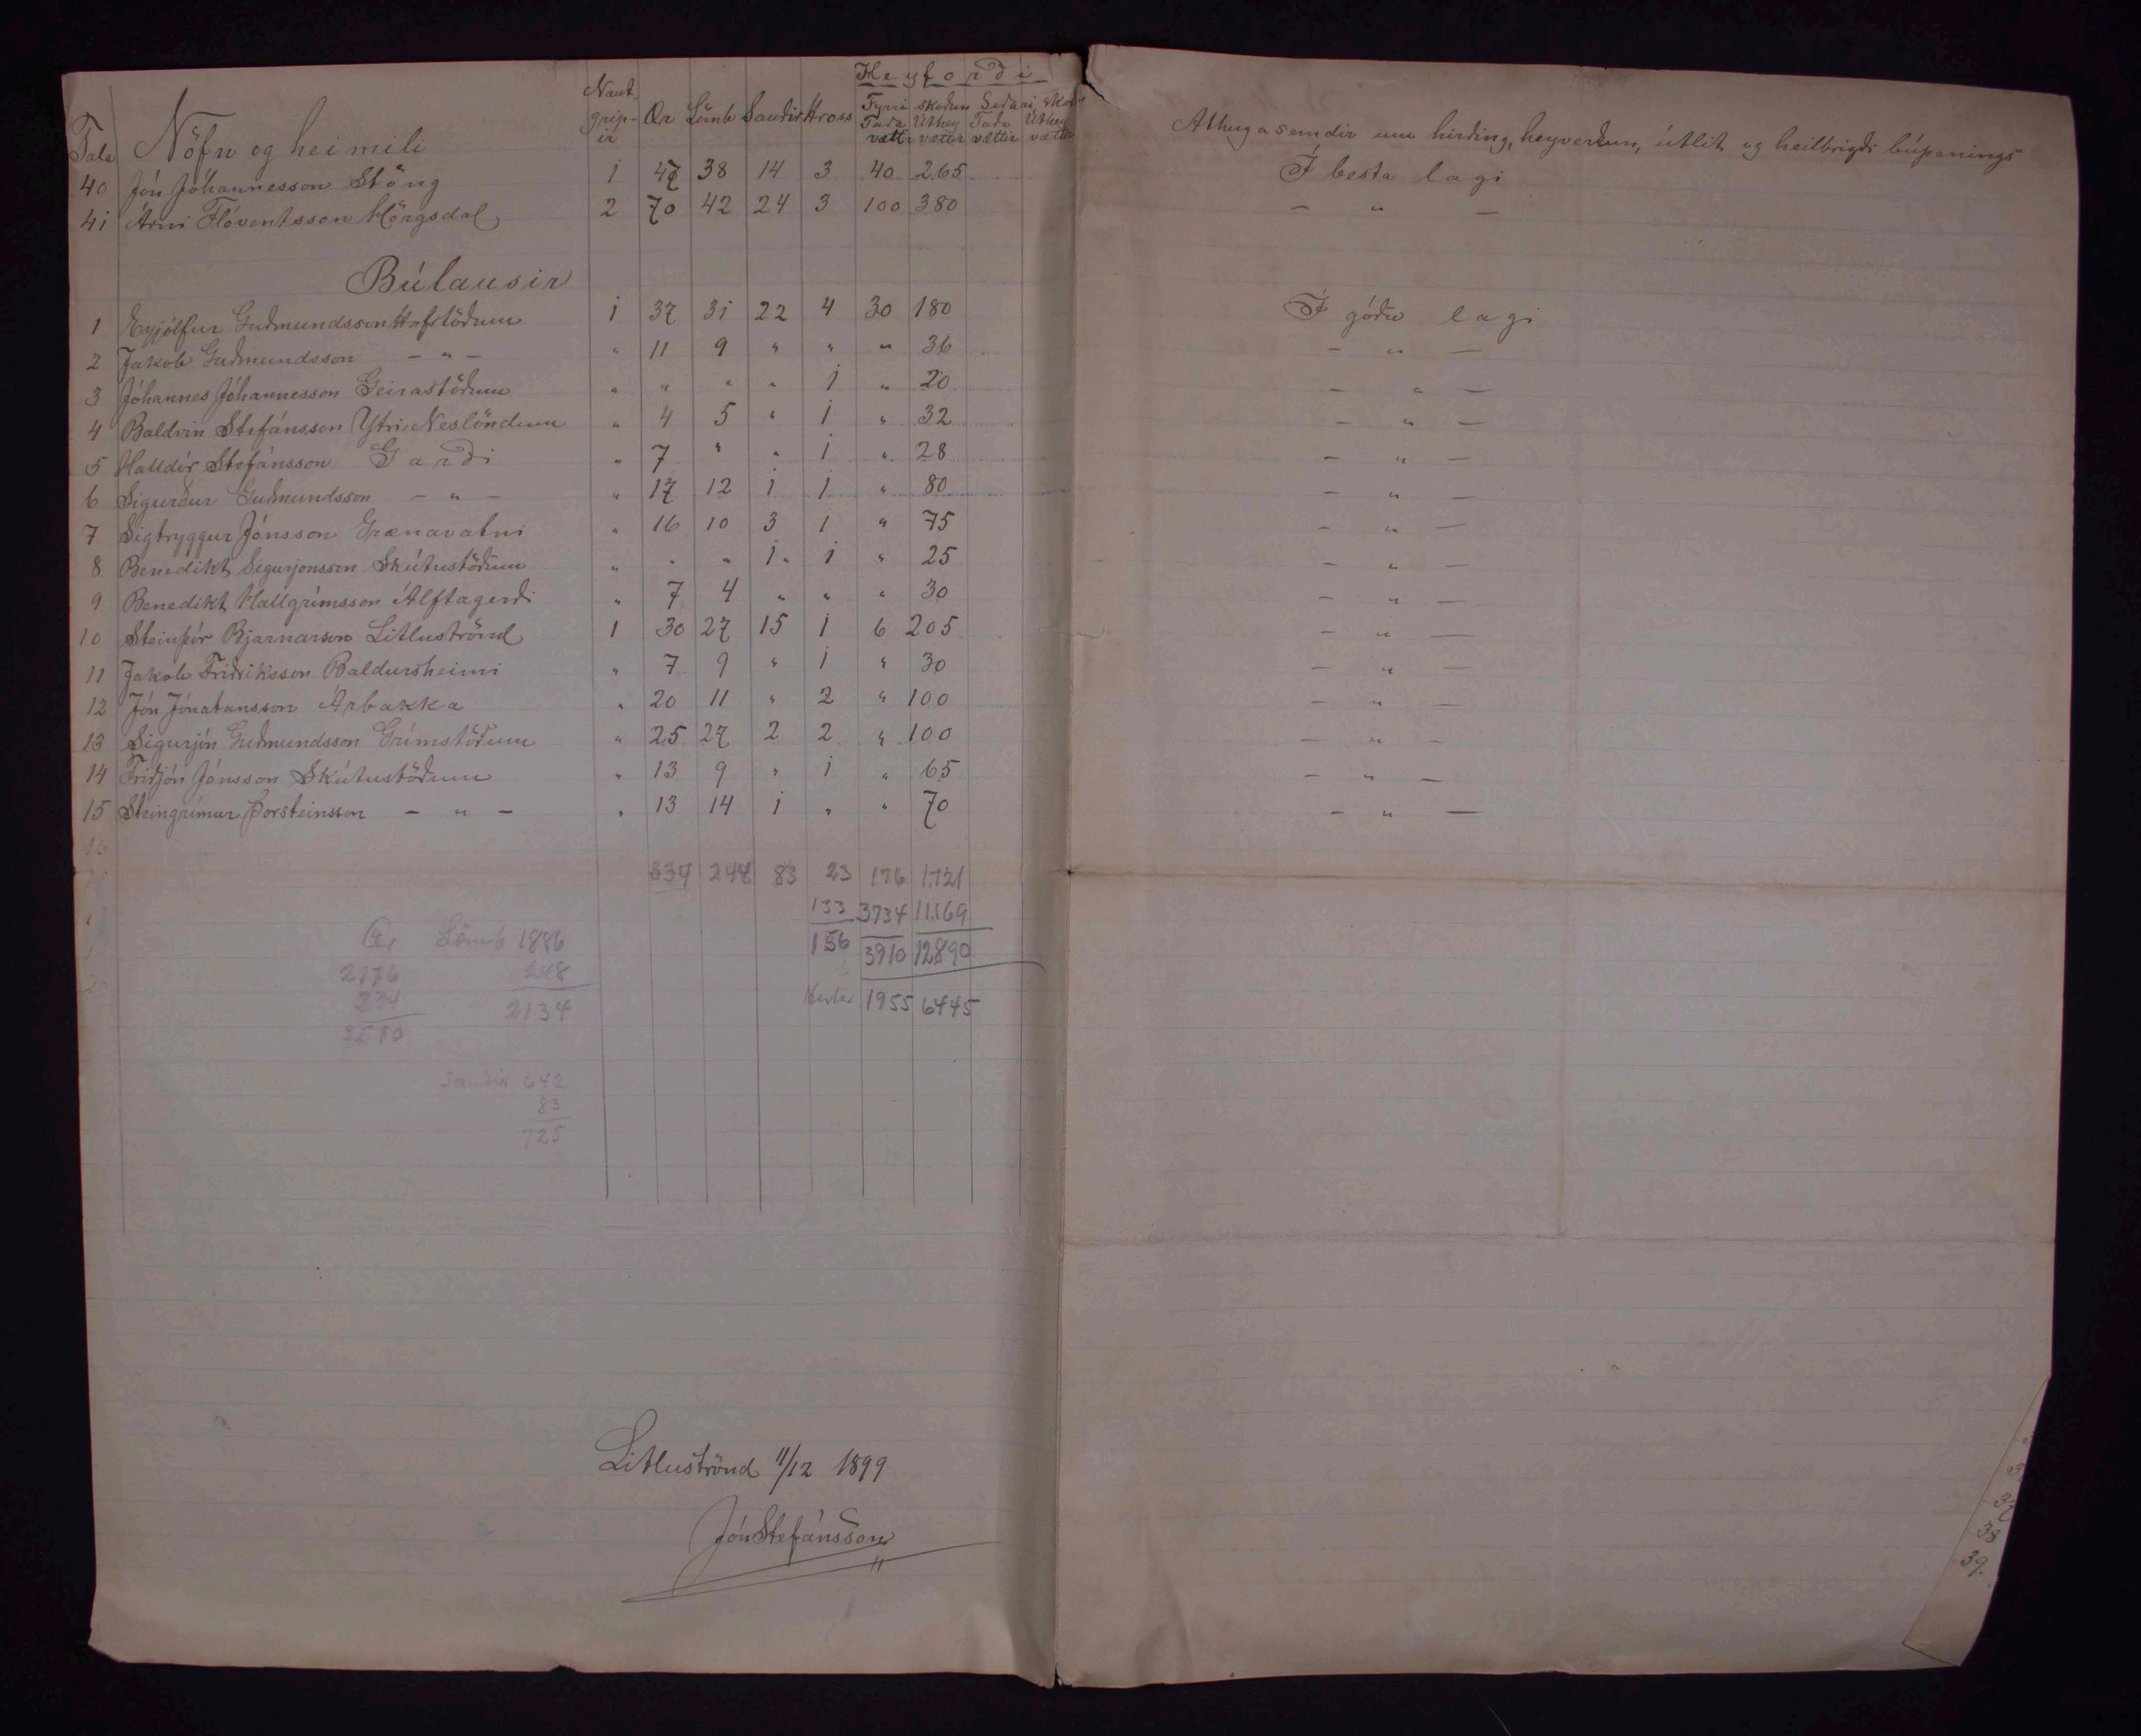 Heyforði
Naut- Fyrri skoðun Seðari skoð-
Tala Nöfn og heimili grip- Ær Lömb Sauðir Hross Taða Úthey Taða Úthey
ir vættir vættir vættir vættir
Athugasemdir um hirðing, heyverkun, útlit og heilbrigði búpenings
40 Jón Jóhannesson Stöng 1 47 38 14 3 40 265 Í besta lagi
41 Árni Flóventsson Hörgsdal 2 70 42 24 3 100 380 – " –
Búlausir
1 Eyjólfur Guðmundsson Hofstöðum 1 37 31 22 4 30 180 Í góðu lagi
2 Jakob Guðmundsson – " – " 11 9 " " " 36 – " –
3 Jóhannes Jóhannesson Geirastöðum " " " " 1 " 20 – " –
4 Baldvin Stefánsson Ytri Neslöndum " 4 5 " 1 " 32 – " –
5 Halldór Stefánsson Garði " 7 " " 1 " 28 – " –
6 Sigurður Guðmundsson – " – " 17 12 1 1 " 80 – " –
7 Sigtryggur Jónsson Grænavatni " 16 10 3 1 " 75 – " –
8 Benedikt Sigurjonsson Skútustöðum " " " 1 " 1 " 25 – " –
9 Benedikt Hallgrímsson Álftagerði " 7 4 " " " 30 – " –
10 Steinþór Bjarnarson Litluströnd 1 30 27 15 1 6 205 – " –
11 Jakob Friðriksson Baldursheimi " 7 9 " 1 " 30 – " –
12 Jón Jónatansson Árbakka " 20 11 " 2 " 100 – " –
13 Sigurjón Guðmundsson Grímstöðum " 25 27 2 2 " 100 – " –
14 Friðjón Jónsson Skútustöðum " 13 9 " 1 " 65 – " –
15 Steingrímur Þorsteinsson – " – " 13 14 1 " " 70 – " –
334 248 83 23 176 1721
133 3734 11169
Ær Lömb 1886 156 3910 12890
248
334 2134 1955 6445
Sauðir 642
83
725
Litluströnd 11/12 1899
Jón Stefánsson
37
38
39.